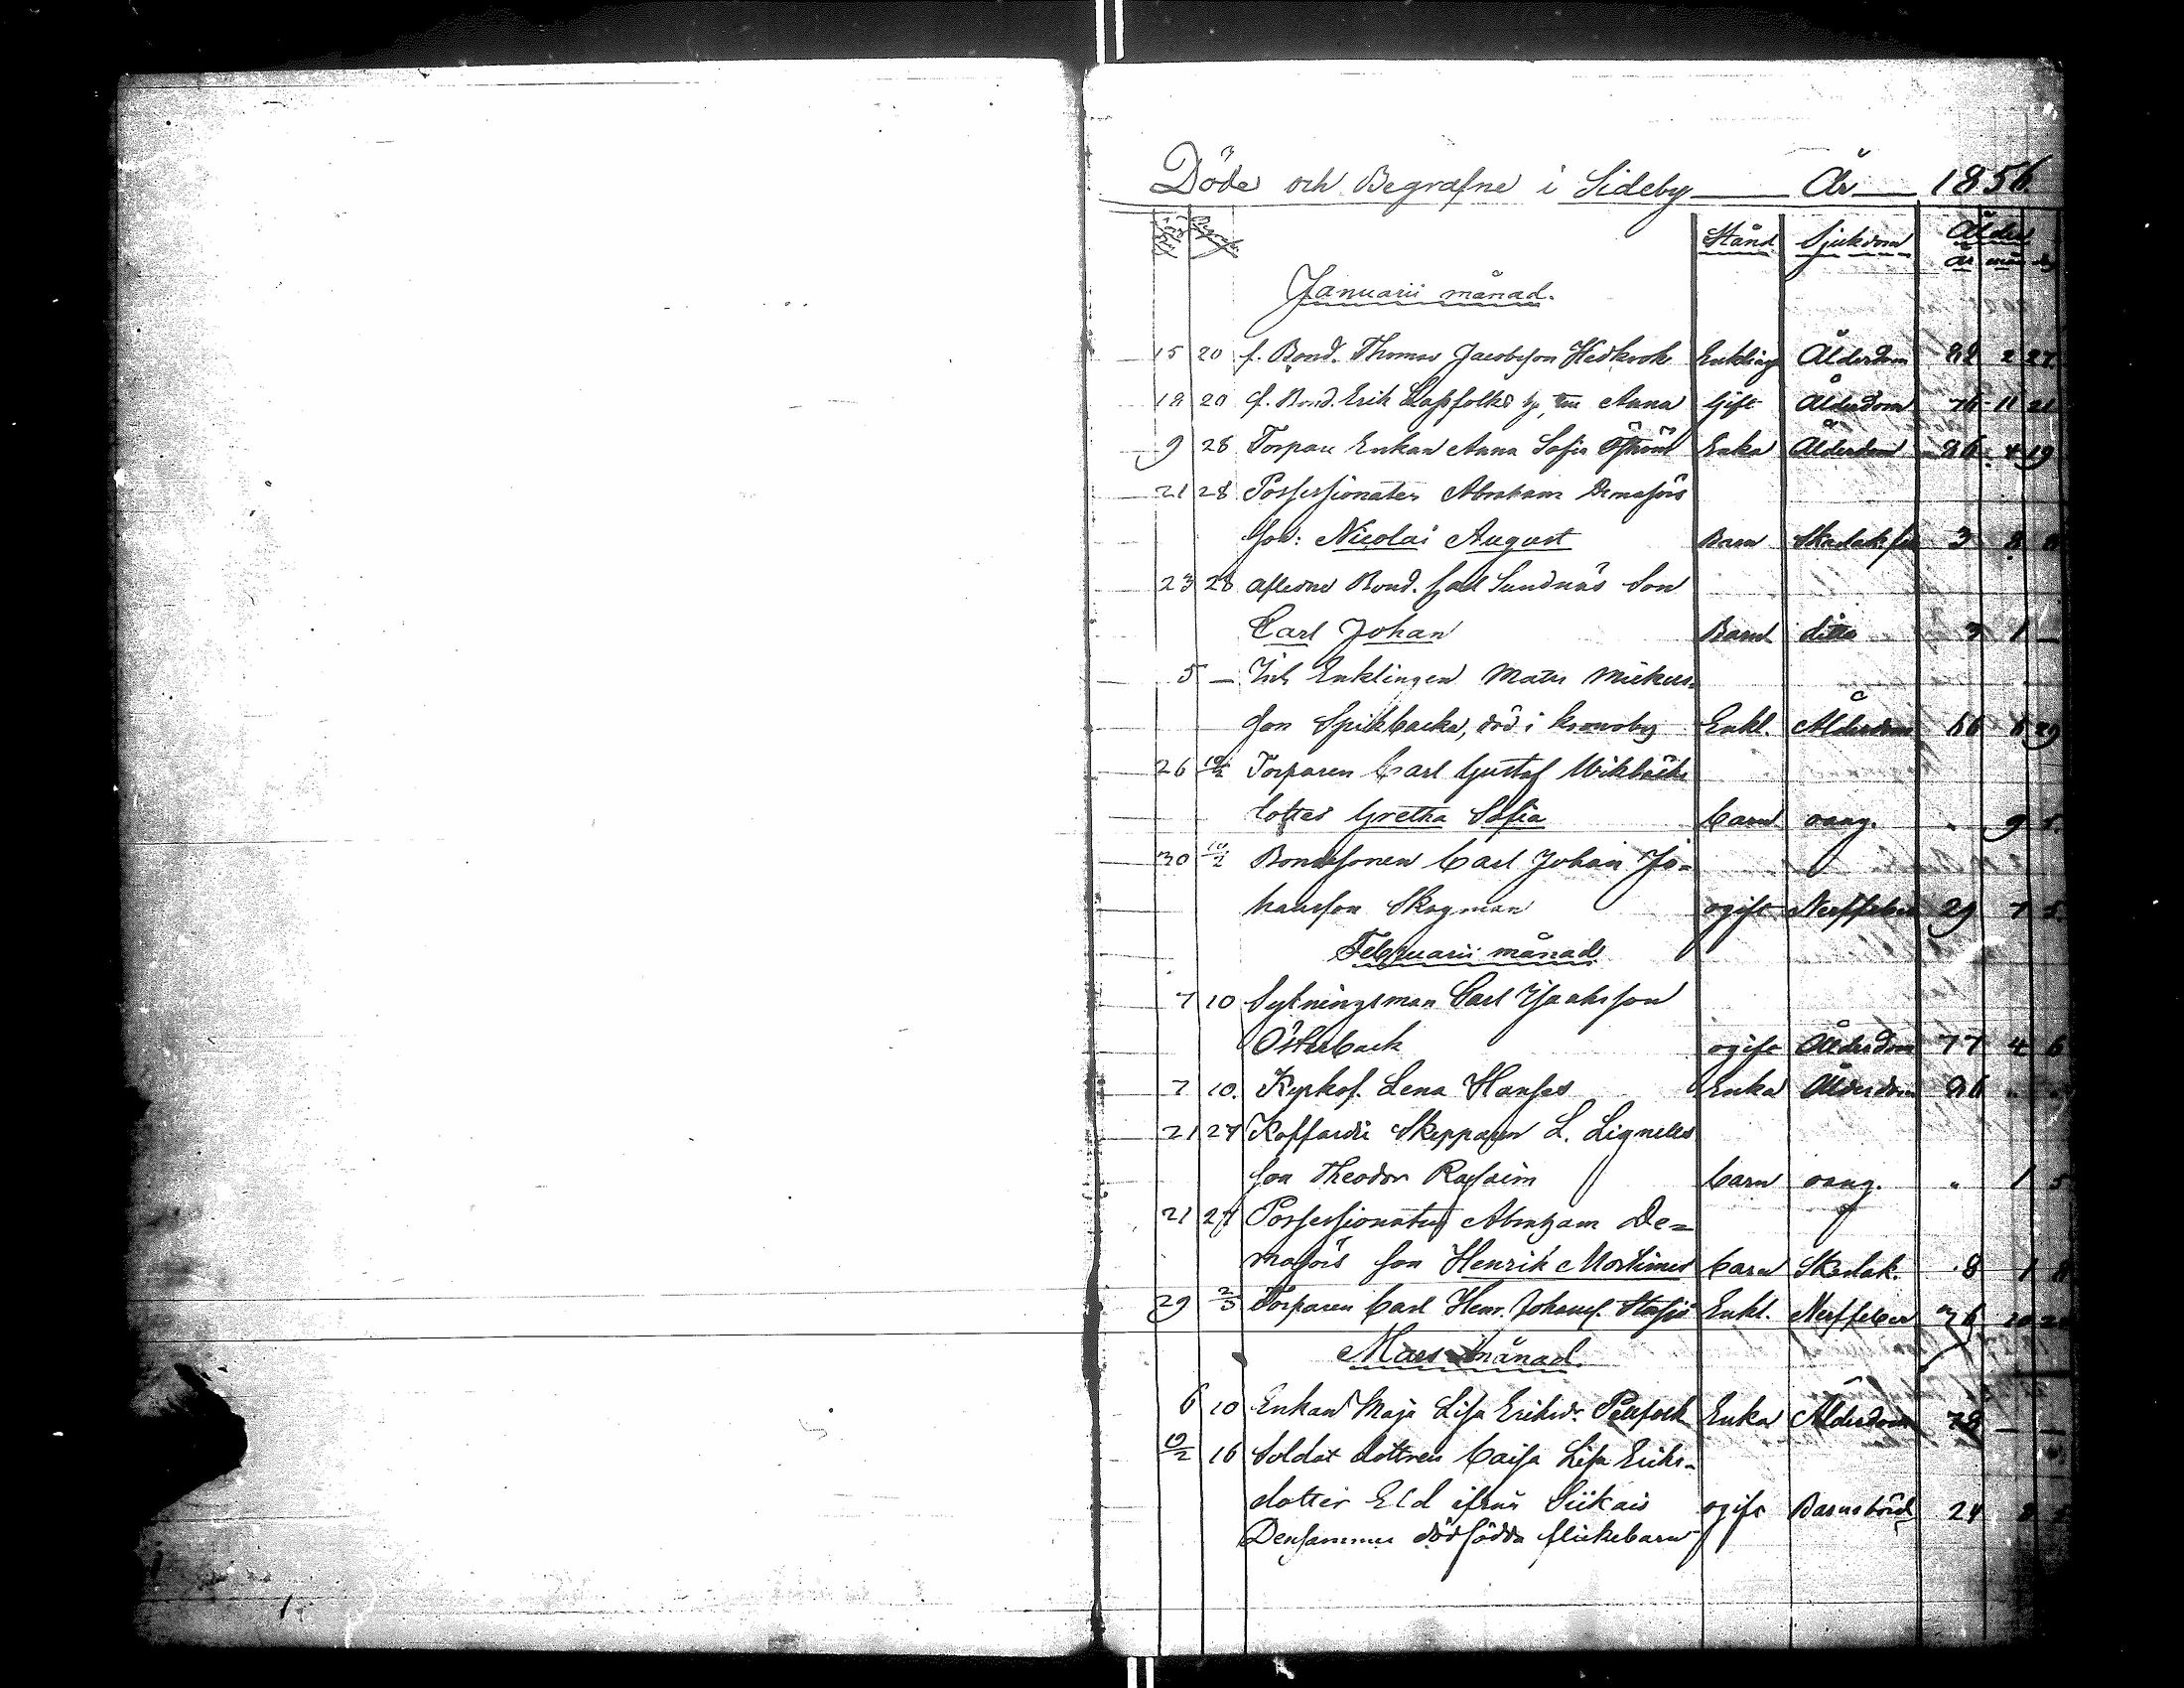 Döde och Begrafne i Sideby År 1856
Stånd Sjukdom Ålder
År mån dag
Januarii månad.
15 20 f. Bond. Thomas Jacobsson Hedkrok Enkling Ålderdom 82 2 27
18 20 f. Bond. Erik Lassfolks Anna Gift Ålderdom 76 11 21
9 28 Torpare Enkan Anna Sofia Enka Ålderdom 86 4 19
21 28 Possessionaten Abraham
Son: Nicolai August Barn 3 8 8
23 28 aflidne Bond. Sundnäs Son
Carl Johan Barn ditto 3 1 —
5 — Enklingen Matts Mickels-
son Spikbacka, död i Enkl. Ålderdom 66 6 29
26 10/2 Torparen Carl Gustaf Wikbäcks
dotter Gretha Sofia barn oang. " 9 5
30 10/2 Bondesonen Carl Johan Jo-
hansson Skogman ogift Nerffeber 29 7 5
Februarii månad
7 10 Sytningsman Carl Isaksson
Österback ogift Ålderdom 77 4 6
7 10. Lena Hansdr Enka Ålderdom 86 " "
21 27 Koffardie Skepparen L. Lignells
son Theodor barn oang. " 1 5
21 27 Possessionaten Abraham De=
son Henrik Mortimer barn Skarlak. 8 1 8
29 2/3 Torparen Carl Henr. Johansf. Enkl. Nerffeber 76 10 20
Mars månad.
6 10 Enkan Maja Lisa Eriksdr. Enka Ålderdom 78 — —
10/2 16 Soldat dottren Caisa Lisa Eriks-
dotter Eld ifrån Siikais ogift Barnsbörd 24 8 5
Densammes dödfödda flickebarn